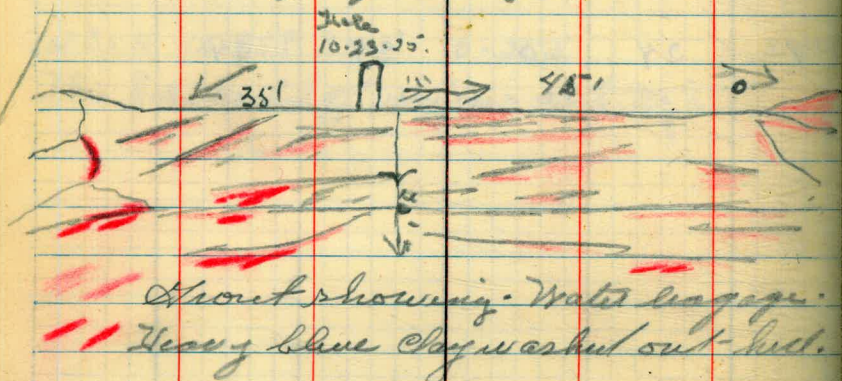 Hole
10-23-25.
35' 45'
Grout showing. Water
Heavy blue clay washed out